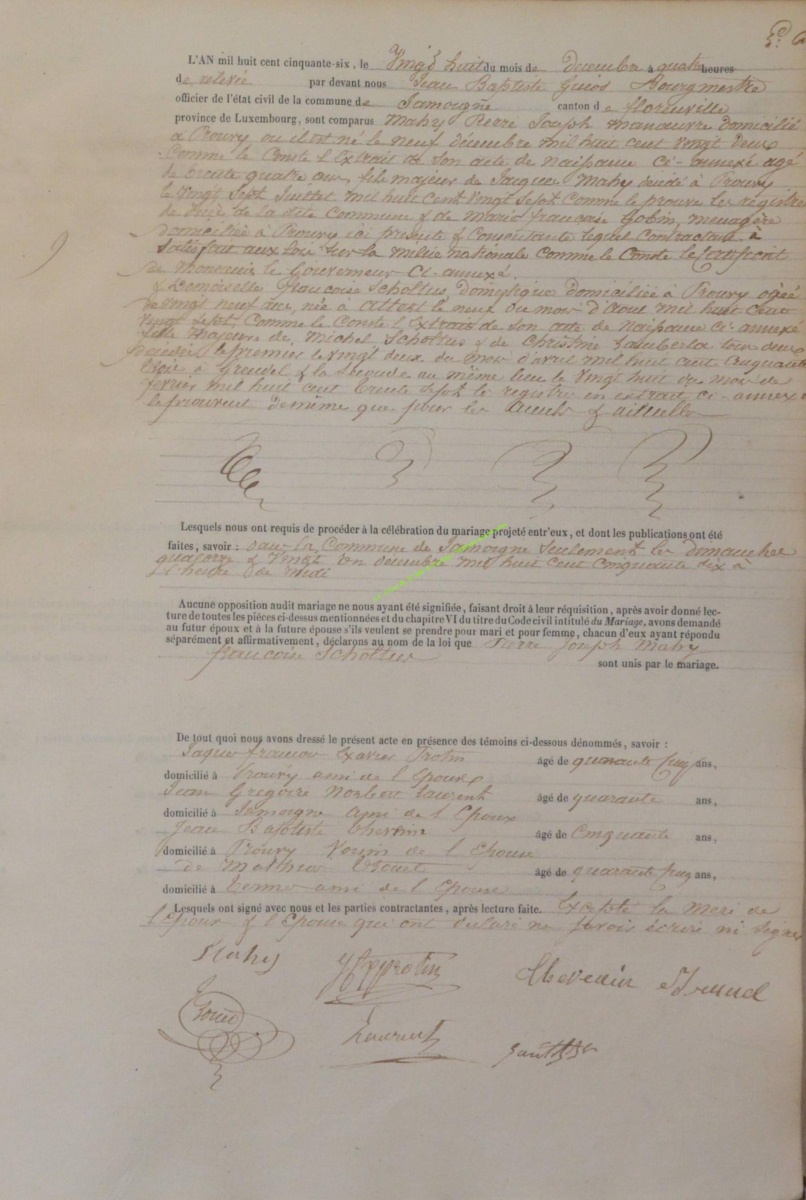 L'AN mil huit cent cinquante-six, le Vingt huit du mois de Decembre à quatre heures
de relevée par devant nous Jean Baptiste Bourgmestre
officier de l'état civil de la commune de Jamoigne canton de florenville
province de Luxembourg, sont comparus Mahy Pierre Joseph manœuvre domicilié
à Prouvy où il est né le neuf décembre mil huit cent vingt deux
Comme le Conste l'Extrait de son acte de naissance Ci-annexé agé
de trente quatre ans, fils majeur de Jacques Mahy décédé à Prouvy
le vingt Sept Juillet mil huit Cent vingt Sept Comme le prouve les registre
de décès de la dite Commune & de Marie françoise Gobin, menagère
domiciliée à Prouvy ici presente & Consentante lequel Contractant à
Satisfait aux lois sur la milice nationale comme le Conste le Certificat
de monsieur le Gouverneur Ci-annexé.
& Demoiselle françoise Scholtus, Domestique domiciliée à Prouvy agée
de vingt neuf ans, née à Attert le neuf du mois d'Aout mil huit Cent
vingt Sept, Comme le Conste l'Extrait de son acte de naissance Ci-annexé
fille majeure de Michel Scholtus & de Christine Lamberta tous deux
décédés le premier le vingt deux du mois d'avril mil huit cent Cinquante
trois à & la Seconde au même lieu le vingt huit du mois de
fevrier mil huit cent trente Sept le registre en extrait Ci-annexé
le prouvent de même que pour les &
Lesquels nous ont requis de procéder à la célébration du mariage projeté entr'eux, et dont les publications ont été
faites, savoir : dans la Commune de Jamoigne Seulement les dimanches
quatorze & Vingt un decembre mil huit cent Cinquante Six à
l'heure de midi
Aucune opposition audit mariage ne nous ayant été signifiée, faisant droit à leur réquisition, après avoir donné lec-
ture de toutes les pièces ci-dessus mentionnées et du chapitre VI du titre du Code civil intitulé du Mariage, avons demandé
au futur époux et à la future épouse s'ils veulent se prendre pour mari et pour femme, chacun d'eux ayant répondu
séparément et affirmativement, déclarons au nom de la loi que Pierre Joseph Mahy
françoise Scholtus sont unis par le mariage.
De tout quoi nous avons dressé le présent acte en présence des témoins ci-dessous dénommés, savoir :
Jaques françois Xavier Protin âgé de quarante Cinq ans,
domicilié à Prouvy ami de l'Epoux
Jean Gregoire Norbert Laurent âgé de quarante ans,
domicilié à Jamoigne ami de l'Epoux
Jean Baptiste âgé de Cinquante ans,
domicilié à Prouvy Voisin de l'Epouse
de Mathieu âgé de quarante Cinq ans,
domicilié à Termes ami de l'Epouse
Lesquels ont signé avec nous et les parties contractantes, après lecture faite. Excepté la Mere de
l'Epoux & l'Epouse qui ont déclaré ne savoir écrire ni signer
Mahy
Laurent